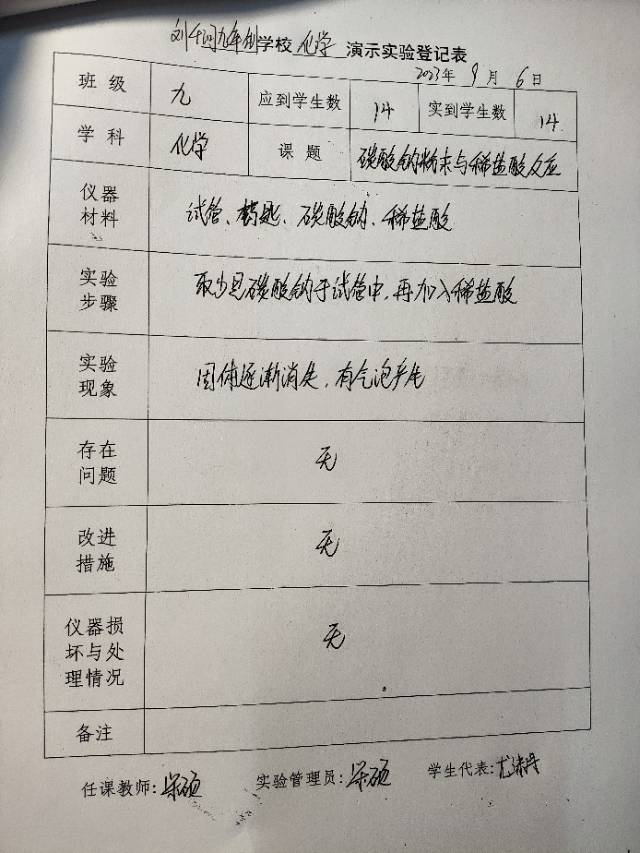 刘千河九年制学校 化学 演示实验登记表
2023年 9月 6日
班级 九 应到学生数 14 实到学生数 14
学科 化学 课题 碳酸钠粉末与稀盐酸反应
仪器材料 试管、药匙、碳酸钠、稀盐酸
实验步骤 取少量碳酸钠于试管中,再加入稀盐酸
实验现象 固体逐渐消失,有气泡产生
存在问题 无
改进措施 无
仪器损坏与处理情况 无
备注
任课教师: 实验管理员: 学生代表: